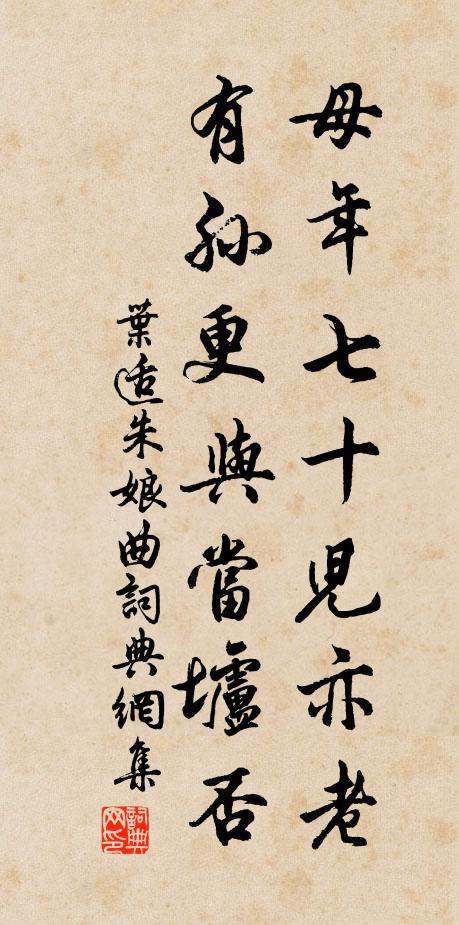 母年七十兒亦老
有孫更與當壚否
葉适朱娘曲詞典網集
詞典網印